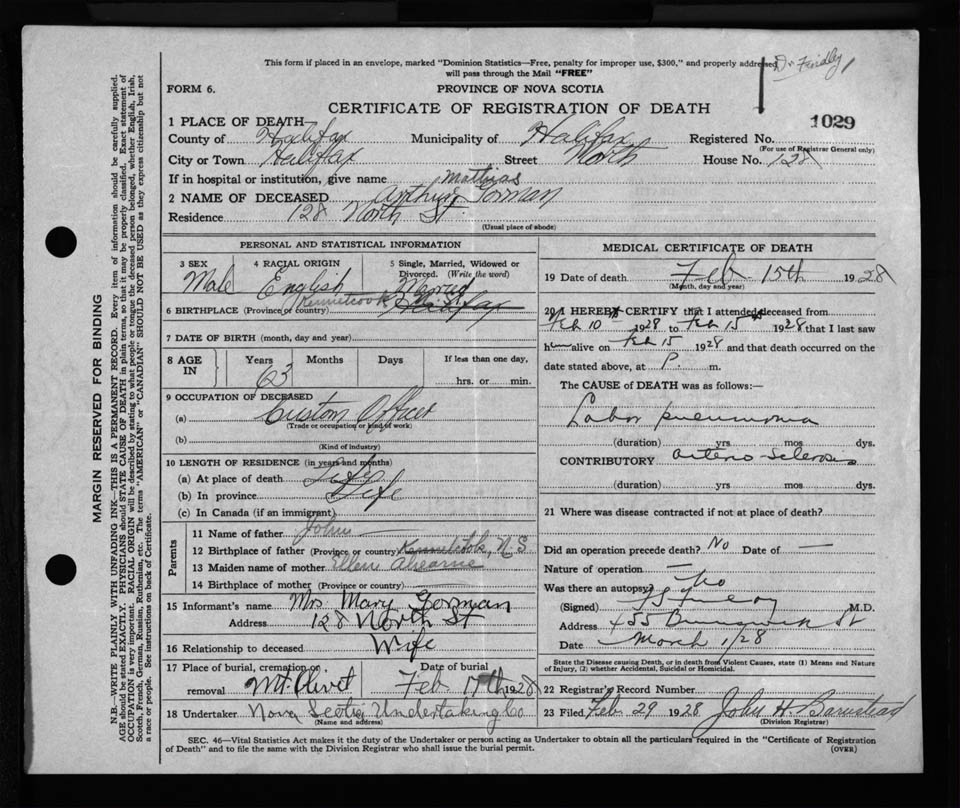 This form if placed in an envelope, marked "Dominion Statistics—Free, penalty for improper use, $300," and properly addressed,
will pass through the Mail "FREE"
Dr Findley
FORM 6.
PROVINCE OF NOVA SCOTIA
CERTIFICATE OF REGISTRATION OF DEATH
1029
1 PLACE OF DEATH
County of Halifax Municipality of Halifax Registered No.
(For use of Registrar General only)
City or Town Halifax Street North House No. 128
If in hospital or institution, give name
Mathias
2 NAME OF DECEASED Arthur Gorman
Residence 128 North St.
(Usual place of abode)
PERSONAL AND STATISTICAL INFORMATION
3 SEX Male
4 RACIAL ORIGIN English
5 Single, Married, Widowed or Divorced. (Write the word) Married
6 BIRTHPLACE (Province or country) Kennetcook Halifax
7 DATE OF BIRTH (month, day and year)
8 AGE IN Years 63 Months Days If less than one day, hrs. or min.
9 OCCUPATION OF DECEASED
(a) Custom Officer
(Trade or occupation or kind of work)
(b)
(Kind of industry)
10 LENGTH OF RESIDENCE (in years and months)
(a) At place of death Life
(b) In province Life
(c) In Canada (if an immigrant)
Parents
11 Name of father John
12 Birthplace of father (Province or country) Kennetcook, N S
13 Maiden name of mother Ellen Ahearne
14 Birthplace of mother (Province or country)
15 Informant's name Mrs Mary Gorman
Address 128 North St
16 Relationship to deceased Wife
17 Place of burial, cremation or removal Mt. Olivet
Date of burial Feb 17th 1928
18 Undertaker Nova Scotia Undertaking Co
(Name and address)
MEDICAL CERTIFICATE OF DEATH
19 Date of death Feb 15th 1928
(Month, day and year)
20 I HEREBY CERTIFY that I attended deceased from
Feb 10 1928 to Feb 15 1928 that I last saw
him alive on Feb 15 1928 and that death occurred on the
date stated above, at P. m.
The CAUSE of DEATH was as follows:—
Lobar pneumonia
(duration) yrs. mos. dys.
CONTRIBUTORY Arterio Sclerosis
(duration) yrs. mos. dys.
21 Where was disease contracted if not at place of death?
Did an operation precede death? No Date of —
Nature of operation —
Was there an autopsy? No
(Signed) M.D.
Address 455 Brunswick St
Date March 1/28
State the Disease causing Death, or in death from Violent Causes, state (1) Means and Nature
of Injury, (2) whether Accidental, Suicidal or Homicidal.
22 Registrar's Record Number
23 Filed Feb 29 1928 John H. Barnstead
(Division Registrar)
SEC. 46—Vital Statistics Act makes it the duty of the Undertaker or person acting as Undertaker to obtain all the particulars required in the "Certificate of Registration
of Death" and to file the same with the Division Registrar who shall issue the burial permit.
(OVER)
MARGIN RESERVED FOR BINDING
N.B.—WRITE PLAINLY WITH UNFADING INK—THIS IS A PERMANENT RECORD. Every item of information should be carefully supplied.
AGE should be stated EXACTLY. PHYSICIANS should STATE CAUSE OF DEATH in plain terms, so that it may be properly classified. Exact statement of
OCCUPATION is very important. RACIAL ORIGIN will be described by stating to what people or tongue the deceased person belonged, whether English, Irish,
Scotch, French, German, Russian, Ruthenian, etc. The terms "AMERICAN" or "CANADIAN" SHOULD NOT BE USED as they express citizenship but not
a race or people. See instructions on back of Certificate.